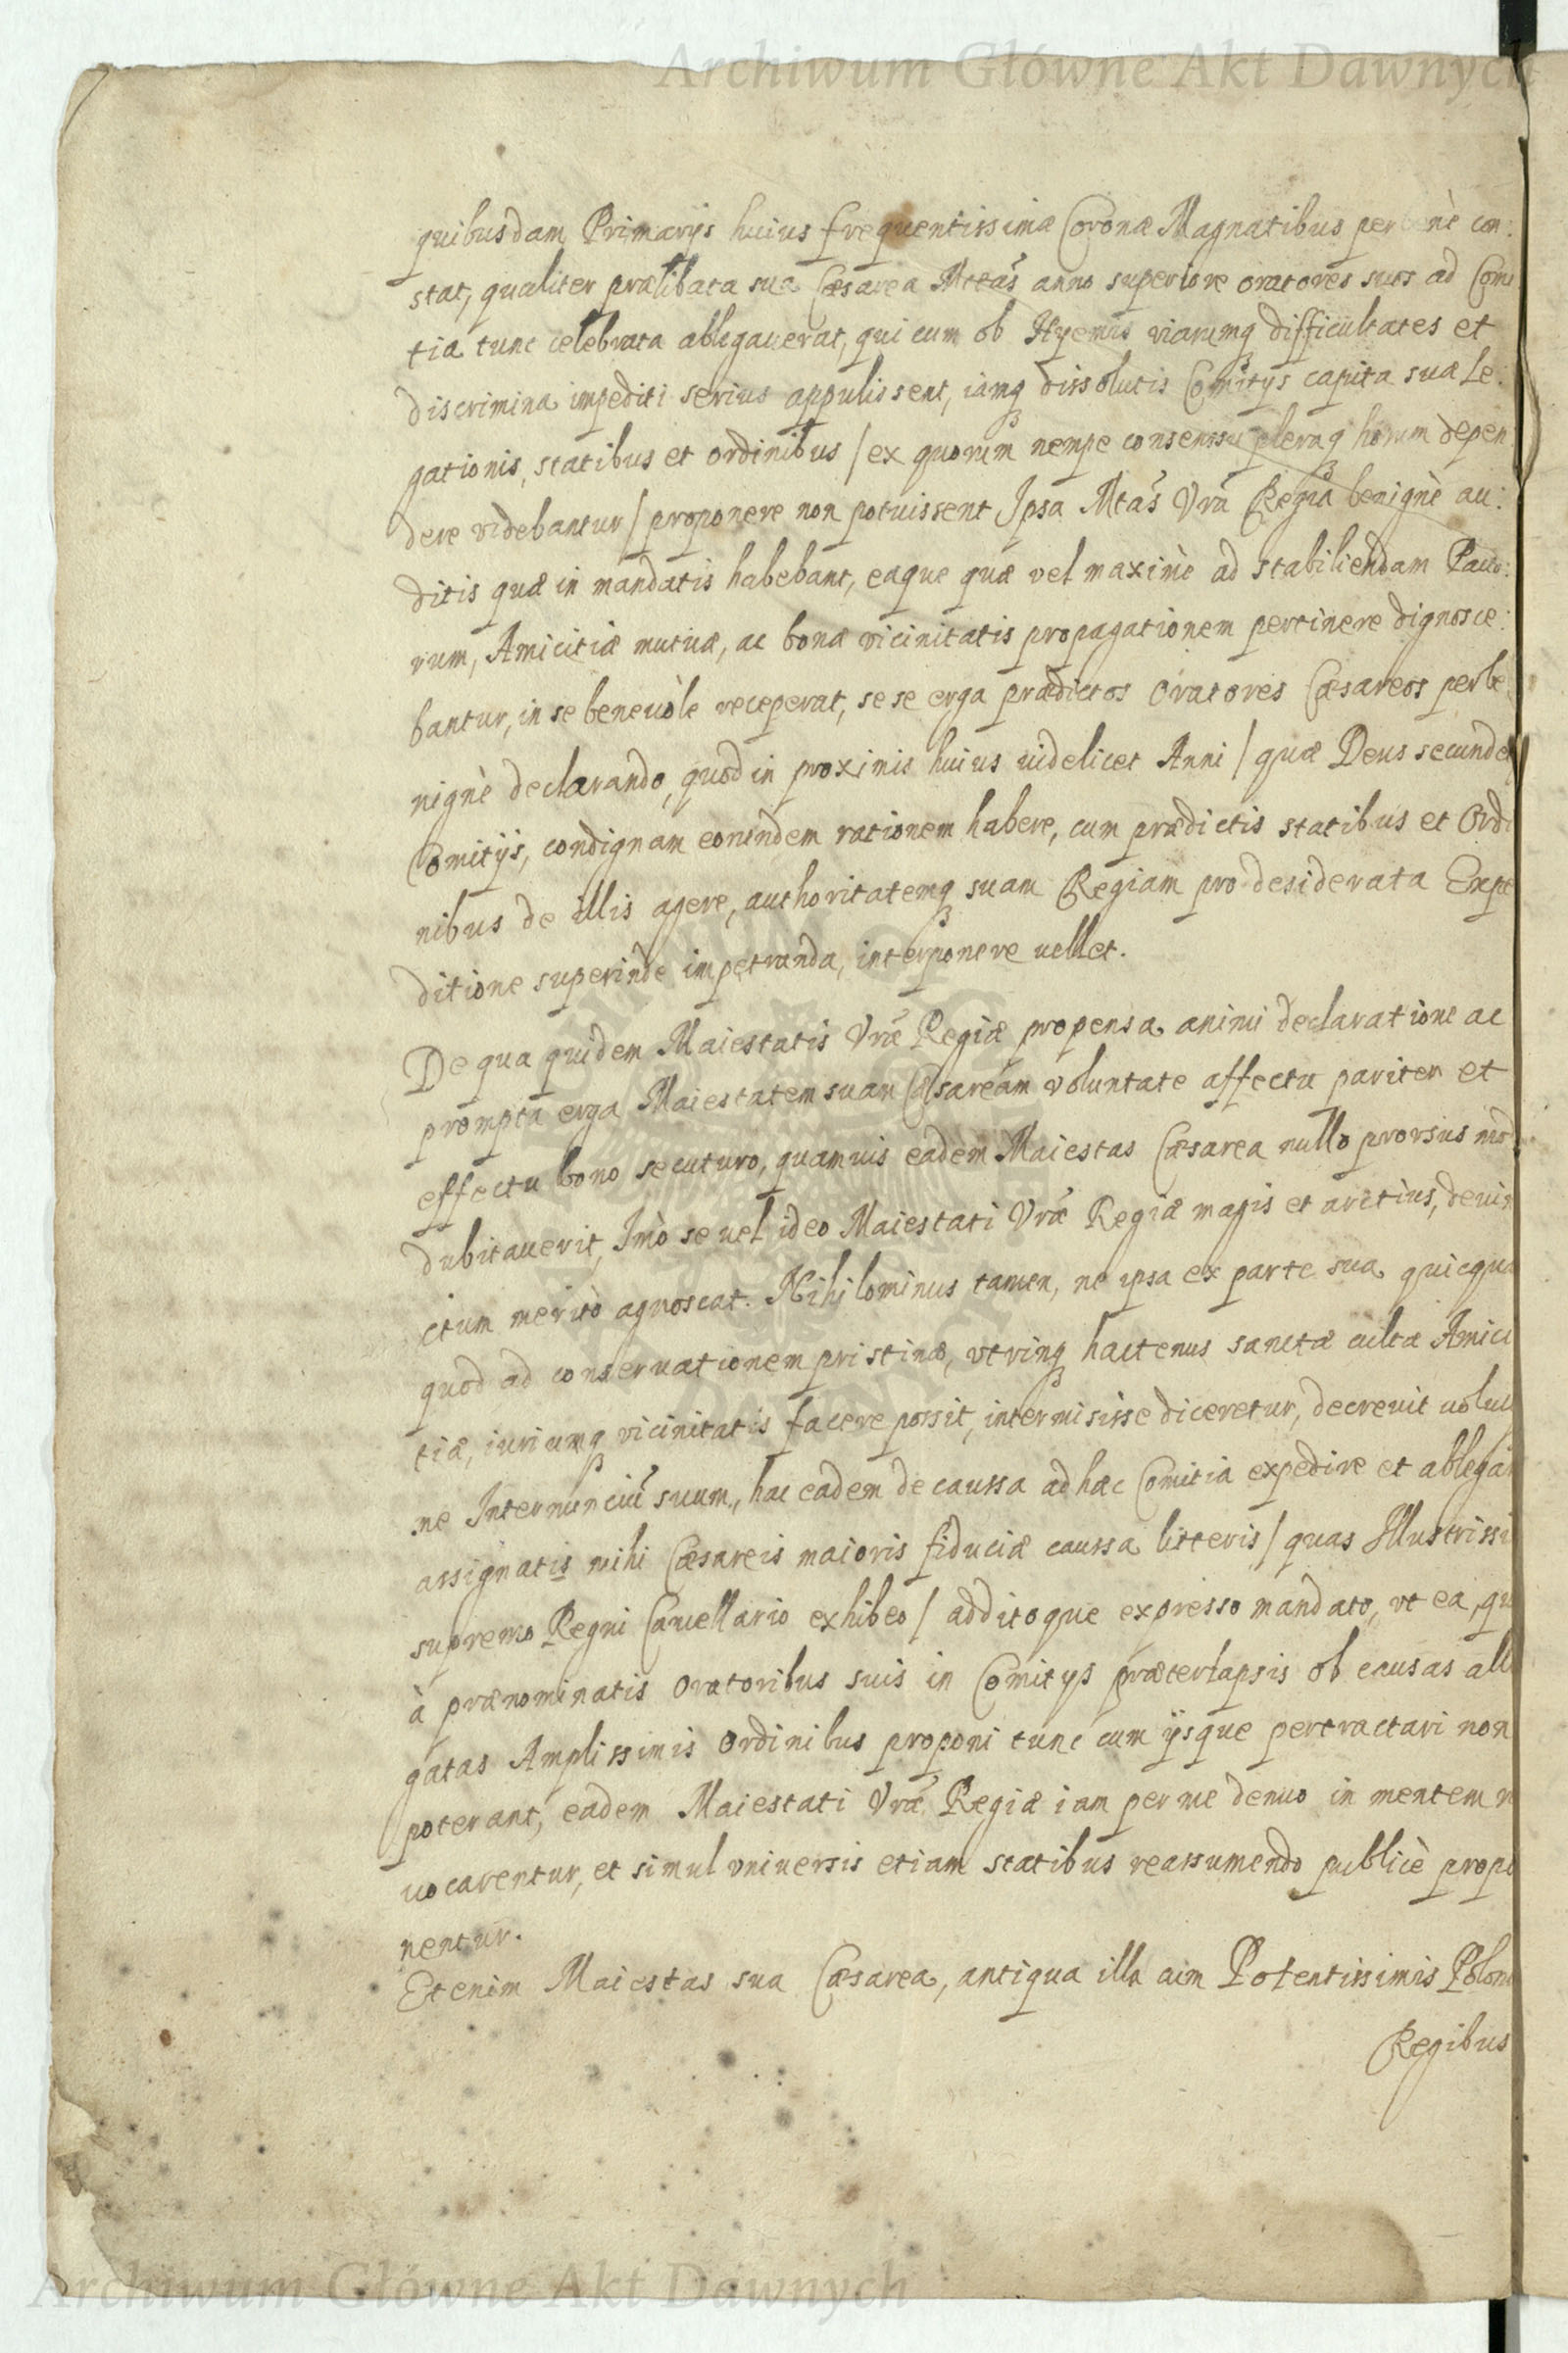 Archiwum Główne Akt Dawnych
quibusdam Primarijs huius frequentissimæ Coronæ Magnatibus perbenè con:
stat, qualiter prælibata sua Cæsarea Mttas anno superiore oratores suos ad Comi
tia tunc celebrata ablegauerat, qui cum ob Hyemis viarumq difficultates et
discrimina impediti serius appulissent, iamq dissolutis Comitijs capita suæ Le:
gationis, statibus et ordinibus / ex quorum nempe consensu pleraq horum depen
dere videbantur / proponere non potuissent Ipsa Mtas Vra Regia benignè au:
ditis quæ in mandatis habebant, eaque quæ vel maximè ad stabiliendam Pacto:
rum, Amicitiæ mutuæ, ac bonæ vicinitatis propagationem pertinere dignosce:
bantur, in se beneuòle receperat, sese erga prædictos Oratores Cæsareos perbe
nignè declarando, quod in proximis huius uidelicet Anni / quæ Deus secundet /
Comitijs, condignam eorundem rationem habere, cum prædictis statibus et Ordi
nibus de illis agere, authoritatemq suam Regiam pro desiderata Expe
ditione superinde impetranda, interponere uellet.
De qua quidem Maiestatis Vræ Regiæ propensa animi declaratione ac
prompta erga Maiestatem suam Cæsaream voluntate affectu pariter et
effectu bono secuturo, quamuis eadem Maiestas Cæsarea nullo prorsus mod
dubitauerit, Imò se uel ideo Maiestati Vræ Regiæ magis et arctius, deuin
ctum meritò agnoscat. Nihilominus tamen, ne ipsa ex parte sua quicqua
quod ad conseruationem pristinæ, vtrinq hactenus sanctæ cultæ Amici
tiæ, iuriumq vicinitatis facere possit, intermisisse diceretur, decreuit uoluit
me Internunciũ suum, hac eadem de caussa ad hæc Comitia expedire et ablegar
assignatis mihi Cæsareis maioris fiduciæ caussa litteris / quas Illustrissi
supremo Regni Cancellario exhibeo / additoque expresso mandato, vt ea, qu
à prænominatis Oratoribus suis in Comitijs præterlapsis ob causas alle
gatas Amplissimis Ordinibus proponi tunc cum ijsque pertractari non
poterant, eadem Maiestati Vræ Regiæ iam per me denuo in mentem re
uocarentur, et simul vniuersis etiam statibus reassumendo publicè propo
nentur.
Etenim Maiestas sua Cæsarea, antiqua illa cum Potentissimis Polon
Regibus
Archiwum Główne Akt Dawnych